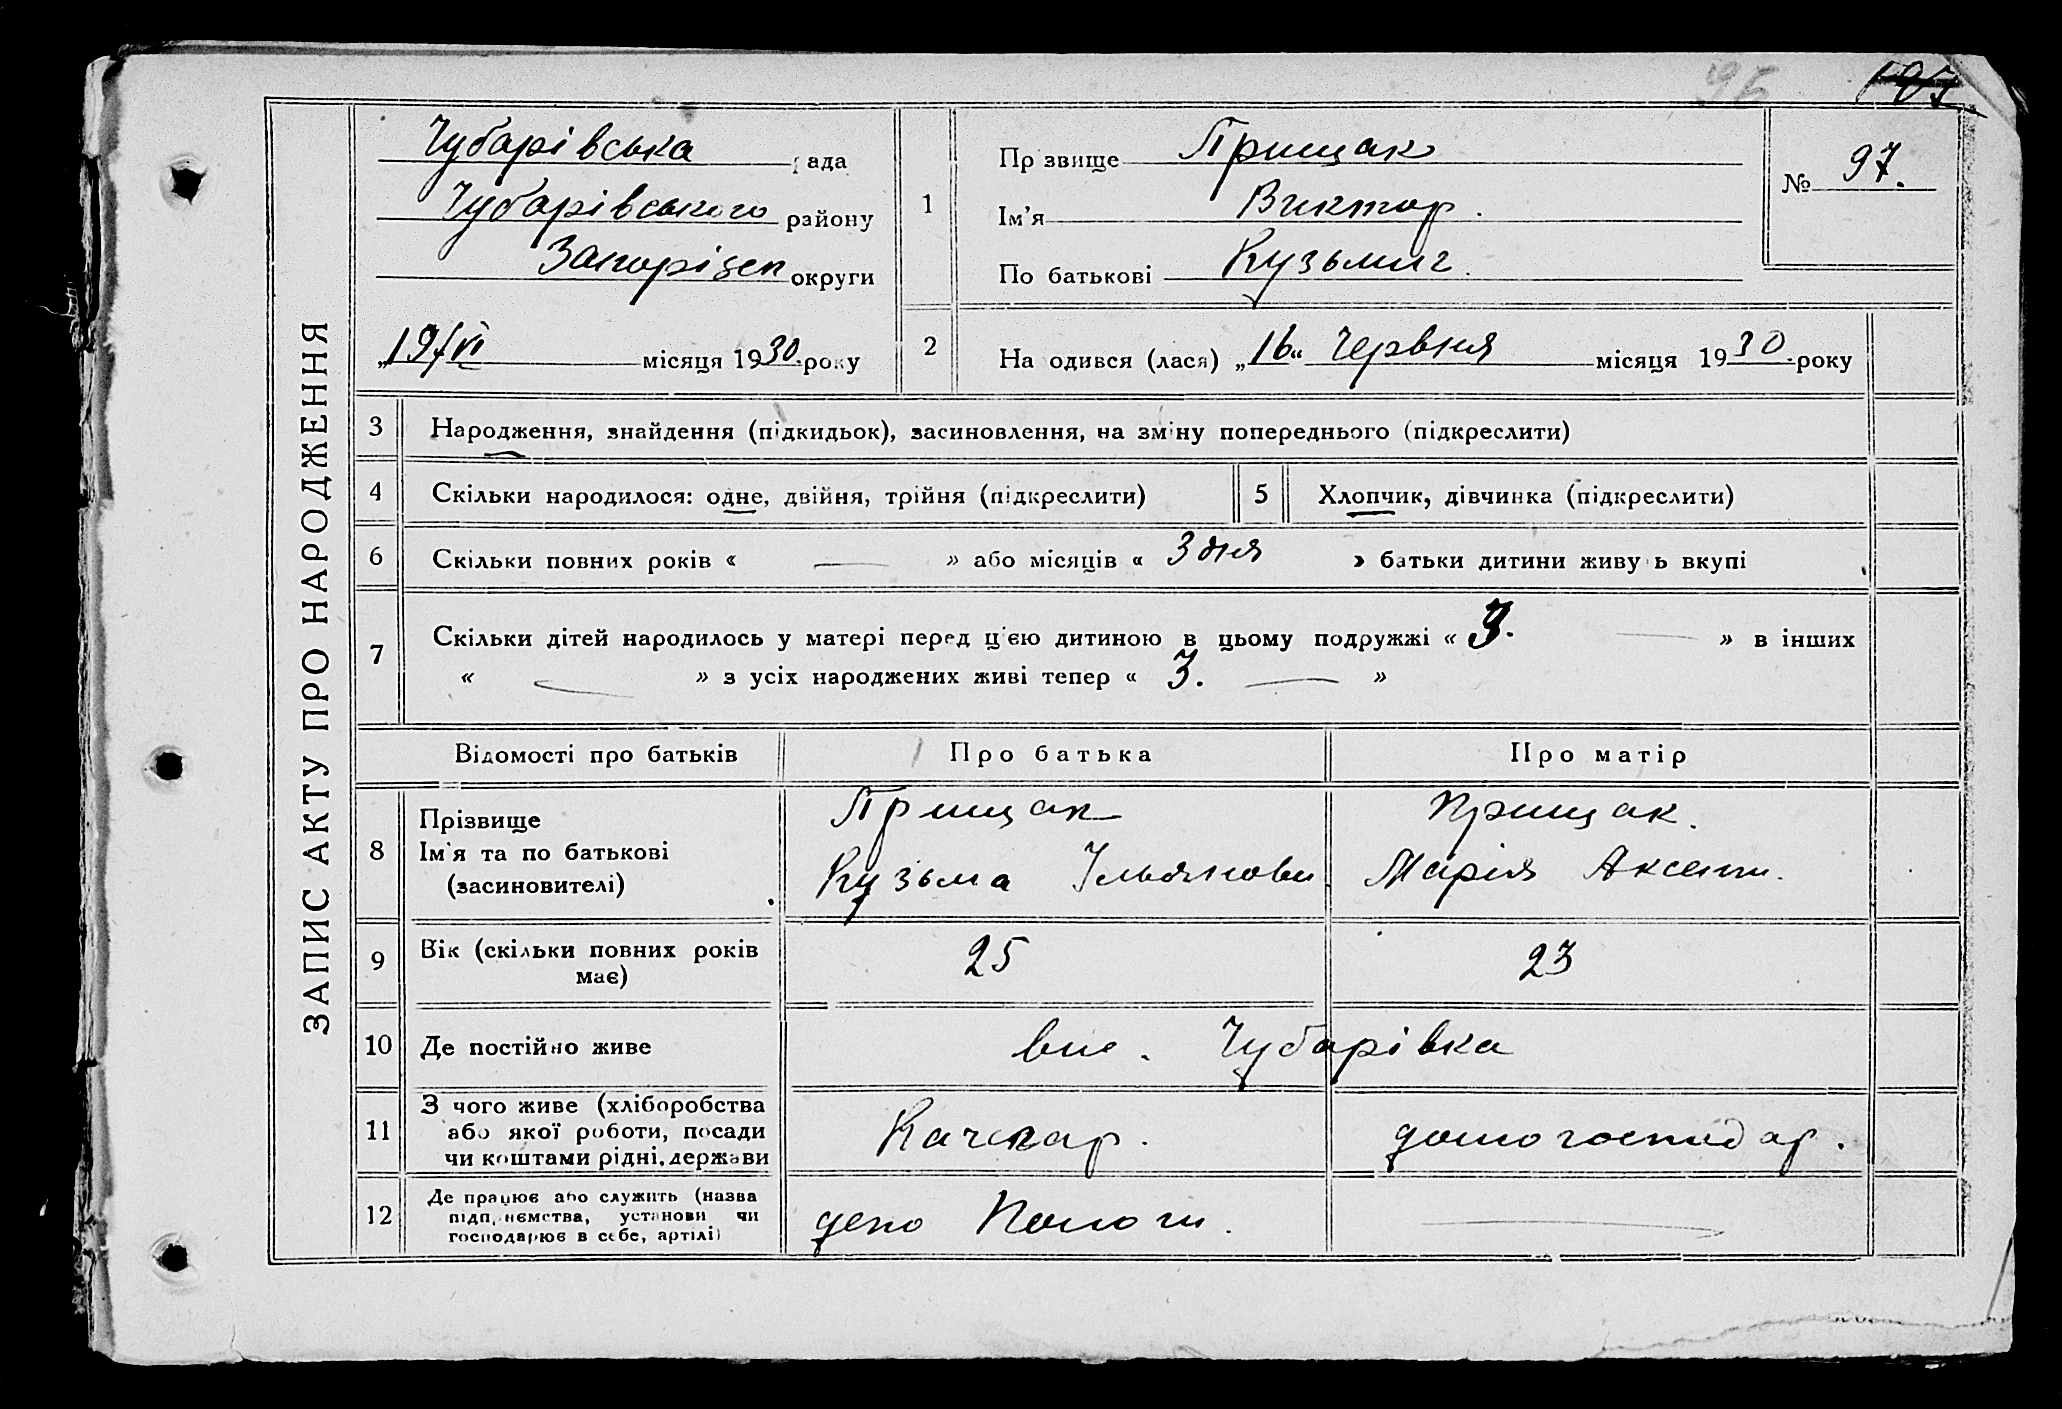 95
ЗАПИС АКТУ ПРО НАРОДЖЕННЯ
Чубарівська рада
Чубарівського району
Запорізьк округи
„19/VI місяця 1930 року
1
Прізвище Прищак
Ім’я Виктор.
По батькові Кузьмич.
№ 97.
2
На одився (лася) „16“ Червня місяця 1930 року
3 Народження, знайдення (підкидьок), засиновлення, на зміну попереднього (підкреслити)
4 Скільки народилося: одне, двійня, трійня (підкреслити) 5 Хлопчик, дівчинка (підкреслити)
6 Скільки повних років « — » або місяців « 3 дня » батьки дитини живу ь вкупі
7 Скільки дітей народилось у матері перед цією дитиною в цьому подружжі « 3. — » в інших
« — » з усіх народжених живі тепер « 3. — »
Відомості про батьків Про батька Про матір
8 Прізвище Прищак Прищак.
Ім’я та по батькові Кузьма Марія Аксент.
(засиновителі)
9 Вік (скільки повних років має) 25 23
10 Де постійно живе Чубарівка
11 З чого живе (хліборобства
або якої роботи, посади Качегар. домогосподар.
чи коштами рідні, держави
12 Де працює або служить (назва
підприємства, установи чи депо Пологи. —
господарює в себе, артілі)